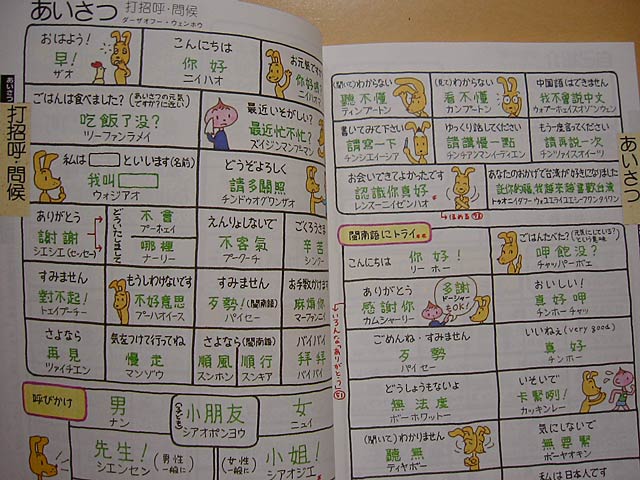 あいさつ 打招呼・問候
ダーザオフー・ウェンホウ
おはよう!
早!
ザオ
こんにちは
你好
ニイハオ
お元気ですか
你好嗎
あいさつ
打招呼・問候
ごはんは食べました?(あいさつの元気ですか?に近い)
吃飯了没?
ツーファンラメイ
最近いそがしい?
最近忙不忙?
ズイジンマンブーマン
私は といいます(名前)
我叫
ウォジアオ
どうぞよろしく
請多關照
チンドゥオグワンザオ
ありがとう
謝謝
シエシエ(セッセー)
どういたしまして
不會
プーホェイ
哪裡
ナーリー
えんりょしないで
不客氣
プークーチ
ごくろうさま
辛苦
シンクー
すみません
對不起!
トェイブーチー
もうしわけないです
不好意思
プーハオイース
すみません
歹勢!(閩南語)
パイセー
お手数かけます
麻煩你
マーファンニイ
さよなら
再見
ツァイチエン
気をつけて行ってね
慢走
マンゾウ
さよなら(閩南語)
順風 順行
スンホン スンキア
バイバイ
拜拜
バイバイ
呼びかけ
男
ナン
小朋友
シアオポンヨウ
女
ニュイ
先生!
シエンセン
(男性一般に)
(女性一般に)
小姐!
シアオジエ
(聞いて)わからない
聽不懂
ティンブートン
(見て)わからない
看不懂
カンブートン
中国語はできません
我不會說中文
ウォアブーホェイスオゾンウェン
書いてみて下さい
請寫一下
チンシエイーシア
ゆっくり話してください
請講慢一點
チンチアンマンイーディエン
もう一度言ってください
請再說一次
チンツァイスオイーツ
お会いできてよかったです
認識你真好
レンスーニイゼンハオ
あなたのおかげで台湾が好きになりました
託你的福,我越來越喜歡台灣
ほめる
閩南語にトライ
こんにちは
你好!
リーホー
ごはんたべた?(元気にしている?という意味)
呷飽没?
チャッパーボエ
ありがとう
感謝你
カムシャーリー
多謝
ドーシャー
もOK!
おいしい!
真好呷
チンホーチャッ
いろんな「ありがとう」
ごめんね・すみません
歹勢
パイセー
いいねえ(very good)
真好
チンホー
どうしようもないよ
無法度
ボーホワットー
いそいで
卡緊咧!
カッキンレー
(聞いて)わかりません
聽無
ティヤボー
気にしないで
無要緊
ボーヤオキン
私は日本人です
あいさつ